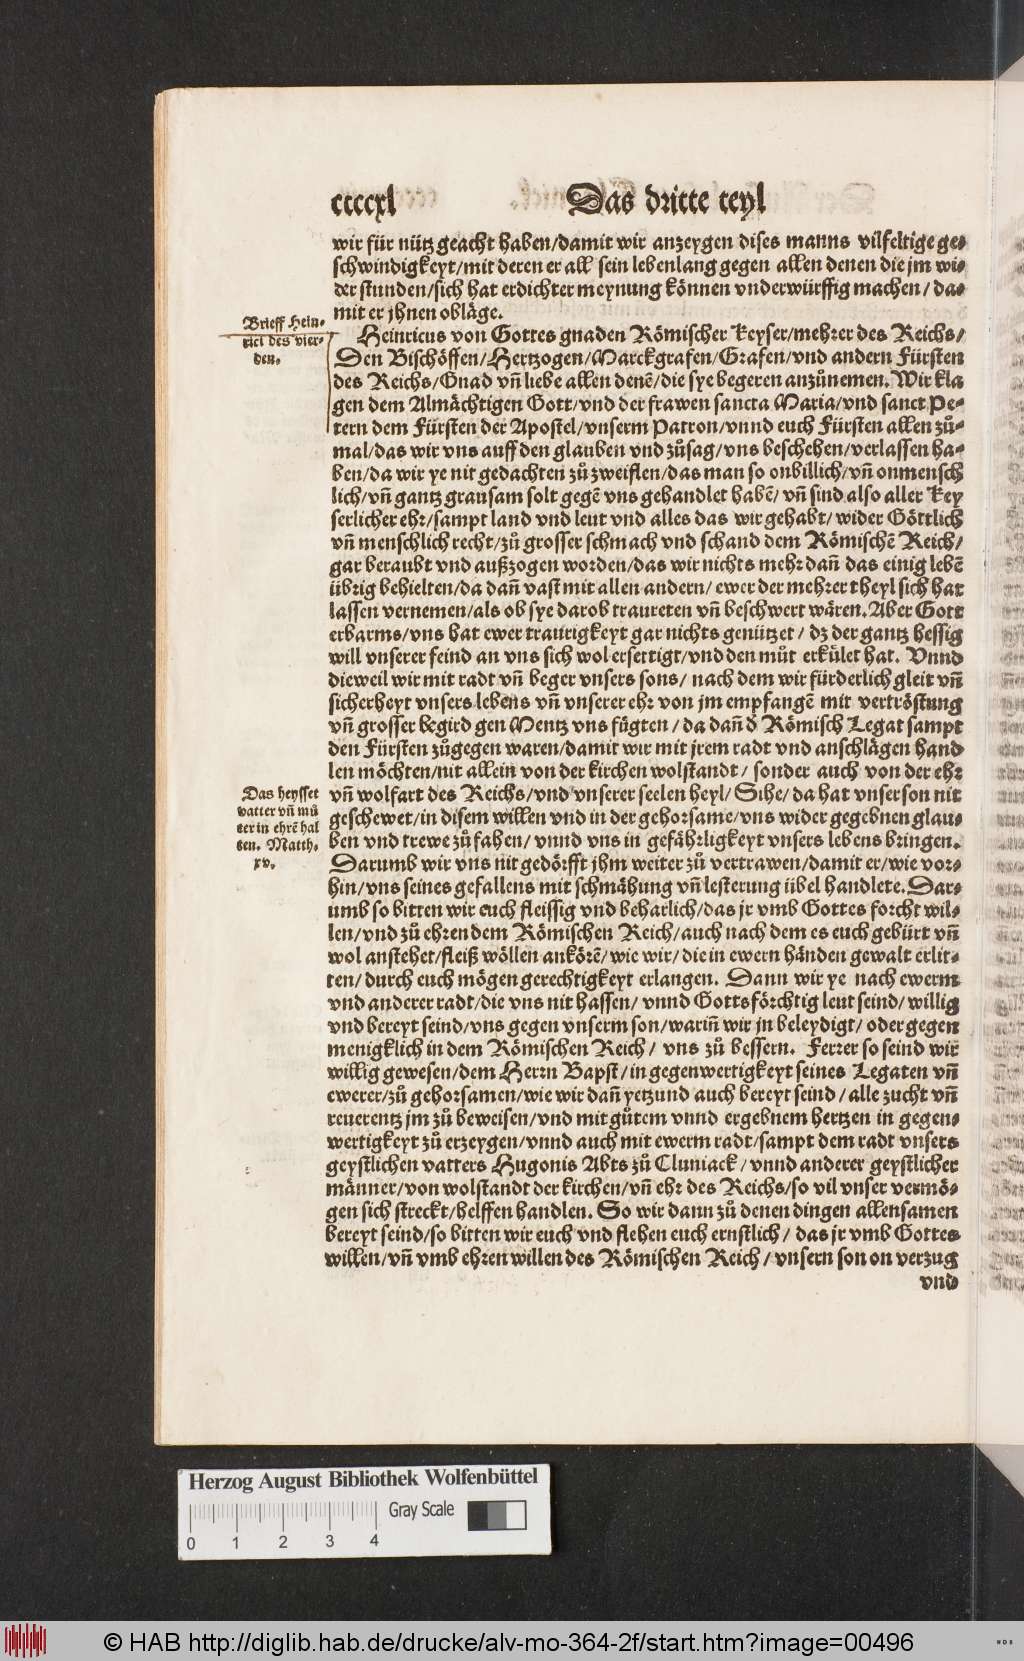 ccccxl Das dritte teyl
wir für nütz geacht haben/damit wir anzeygen dises manns vilfeltige ge⸗
schwindigkeyt/mit deren er all sein lebenlang gegen allen denen die jm wi⸗
der stunden/sich hat erdichter meynung können vnderwürffig machen/da⸗
mit er jhnen obläge.
Brieff Hein⸗
rici des vier⸗
den.
Heinricus von Gottes gnaden Römischer keyser/mehrer des Reichs/
Den Bischöffen/Hertzogen/Marckgrafen/Grafen/vnd andern Fürsten
des Reichs/Gnad vñ liebe allen denē/die sye begeren anzůnemen. Wir kla
gen dem Almächtigen Gott/vnd der frawen sancta Maria/vnd sanct Pe⸗
tern dem Fürsten der Apostel/vnserm Patron/vnnd euch Fürsten allen zů⸗
mal/das wir vns auff den glauben vnd zůsag/vns beschehen/verlassen ha⸗
ben/da wir ye nit gedachten zů zweiflen/das man so onbillich/vñ onmensch
lich/vñ gantz grausam solt gegē vns gehandlet habē/vñ sind also aller key
serlicher ehr/sampt land vnd leut vnd alles das wir gehabt/wider Göttlich
vñ menschlich recht/zů grosser schmach vnd schand dem Römischē Reich/
gar beraubt vnd außzogen worden/das wir nichts mehr dañ das einig lebē
übrig behielten/da dañ vast mit allen andern/ewer der mehrer theyl sich hat
lassen vernemen/als ob sye darob traureten vñ beschwert wären. Aber Gott
erbarms/vns hat ewer traurigkeyt gar nichts genützet/dz der gantz hessig
will vnserer feind an vns sich wol ersettigt/vnd den můt erkület hat. Vnnd
dieweil wir mit radt vñ beger vnsers sons/nach dem wir fürderlich gleit vñ
sicherheyt vnsers lebens vñ vnserer ehr von jm empfangē mit vertröstung
vñ grosser begird gen Mentz vns fügten/da dañ ď Römisch Legat sampt
den Fürsten zůgegen waren/damit wir mit jrem radt vnd anschlägen hand
len möchten/nit allein von der kirchen wolstandt/sonder auch von der ehr
Das heysset
vatter vñ mů
ter in ehrē hal
ten. Matth.
xv.
vñ wolfart des Reichs/vnd vnserer seelen heyl/Sihe/da hat vnser son nit
geschewet/in disem willen vnd in der gehorsame/vns wider gegebnen glau⸗
ben vnd trewe zů fahen/vnnd vns in gefährligkeyt vnsers lebens bringen.
Darumb wir vns nit gedörfft jhm weiter zů vertrawen/damit er/wie vor⸗
hin/vns seines gefallens mit schmähung vñ lesterung übel handlete. Dar⸗
umb so bitten wir euch fleissig vnd beharlich/das jr vmb Gottes forcht wil⸗
len/vnd zů ehren dem Römischen Reich/auch nach dem es euch gebürt vñ
wol anstehet/fleiß wöllen ankörē/wie wir/die in ewern händen gewalt erlit⸗
ten/durch euch mögen gerechtigkeyt erlangen. Dann wir ye nach ewerm
vnd anderer radt/die vns nit hassen/vnnd Gottsförchtig leut seind/willig
vnd bereyt seind/vns gegen vnserm son/wariñ wir jn beleydigt/oder gegen
menigklich in dem Römischen Reich/vns zů bessern. Ferrer so seind wir
willig gewesen/dem Herrn Bapst/in gegenwertigkeyt seines Legaten vñ
ewerer/zů gehorsamen/wie wir dañ yetzund auch bereyt seind/alle zucht vñ
reuerentz jm zů beweisen/vnd mit gůtem vnnd ergebnem hertzen in gegen⸗
wertigkeyt zů erzeygen/vnnd auch mit ewerm radt/sampt dem radt vnsers
geystlichen vatters Hugonis Abts zů Cluniack/vnnd anderer geystlicher
männer/von wolstandt der kirchen/vñ ehr des Reichs/so vil vnser vermö⸗
gen sich streckt/helffen handlen. So wir dann zů denen dingen allensamen
bereyt seind/so bitten wir euch vnd flehen euch ernstlich/das jr vmb Gottes
willen/vñ vmb ehren willen des Römischen Reich/vnsern son on verzug
vnd
Herzog August Bibliothek Wolfenbüttel
Gray Scale
0 1 2 3 4
© HAB http://diglib.hab.de/drucke/alv-mo-364-2f/start.htm?image=00496